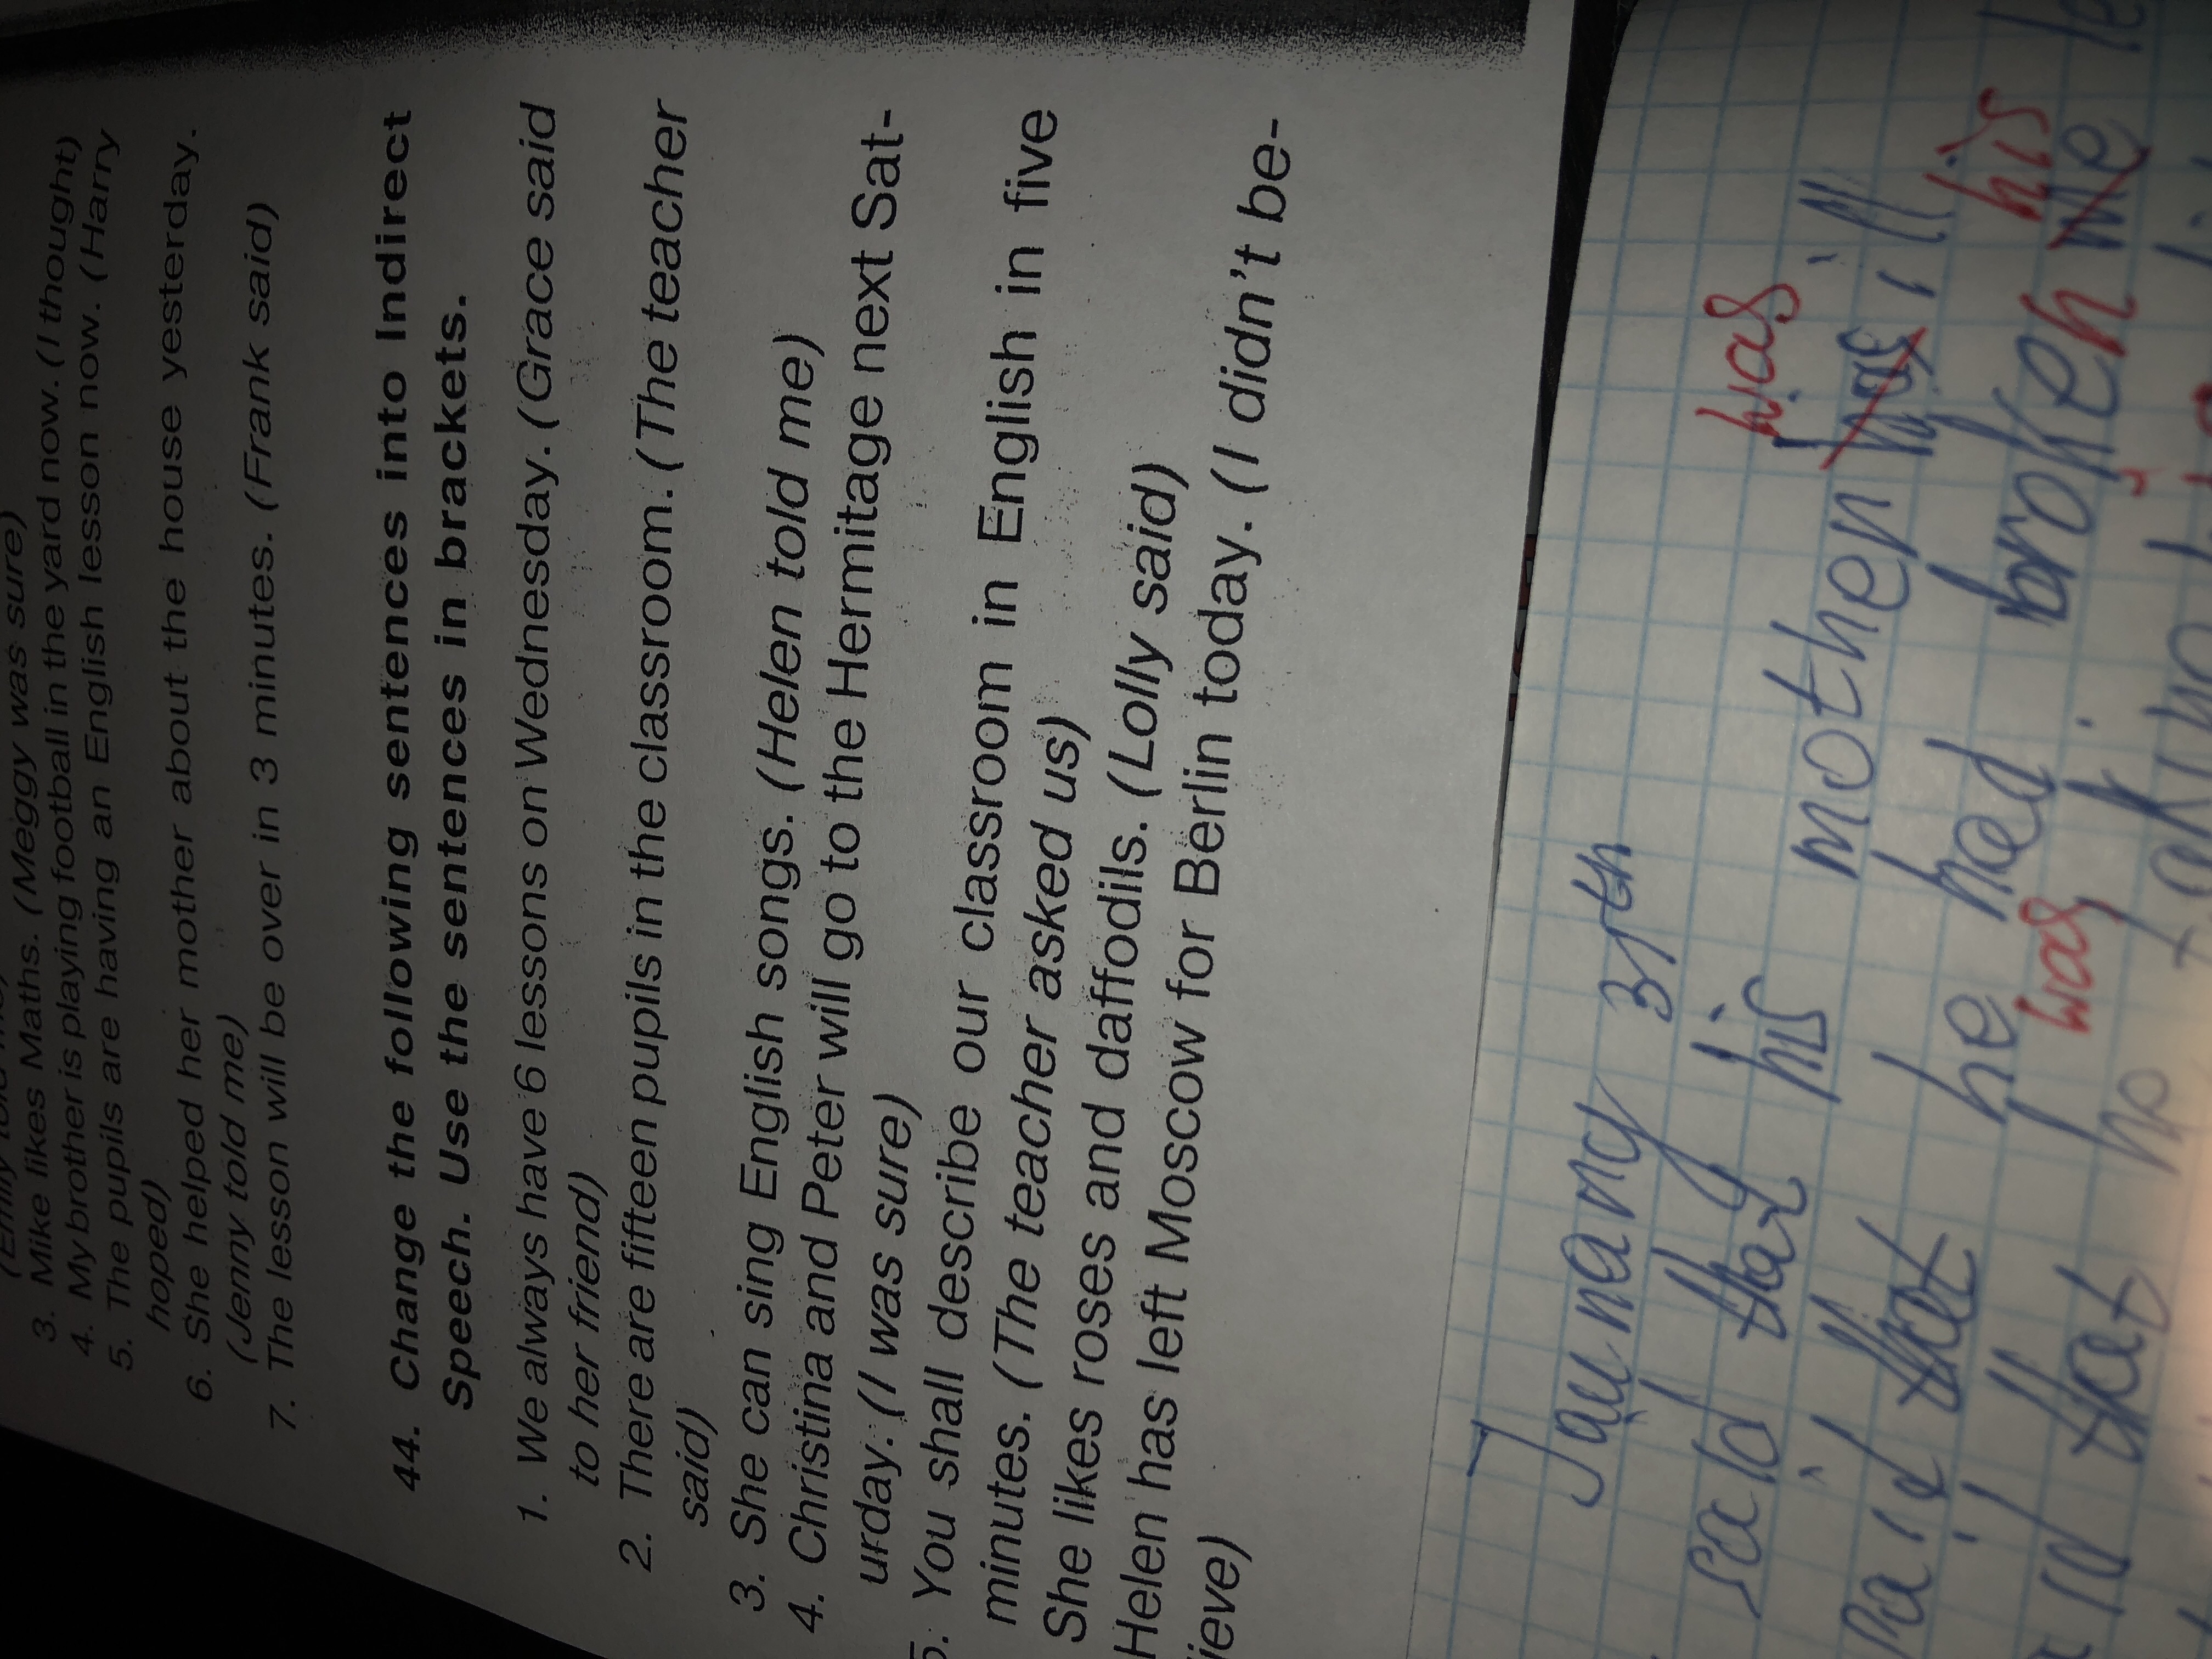 was sure)
3. Mike likes Maths. (Meggy was sure)
4. My brother is playing football in the yard now. (I thought)
5. The pupils are having an English lesson now. (Harry
hoped)
6. She helped her mother about the house yesterday.
(Jenny told me)
7. The lesson will be over in 3 minutes. (Frank said)
44. Change the following sentences into Indirect
Speech. Use the sentences in brackets.
1. We always have 6 lessons on Wednesday. (Grace said
to her friend)
2. There are fifteen pupils in the classroom. (The teacher
said)
3. She can sing English songs. (Helen told me)
4. Christina and Peter will go to the Hermitage next Sat-
urday. (I was sure)
5. You shall describe our classroom in English in five
minutes. (The teacher asked us)
She likes roses and daffodils. (Lolly said)
Helen has left Moscow for Berlin today. (I didn't be-
ieve)
January 31th
said that his mother was ill
has
said that he had broken me
his
was
that